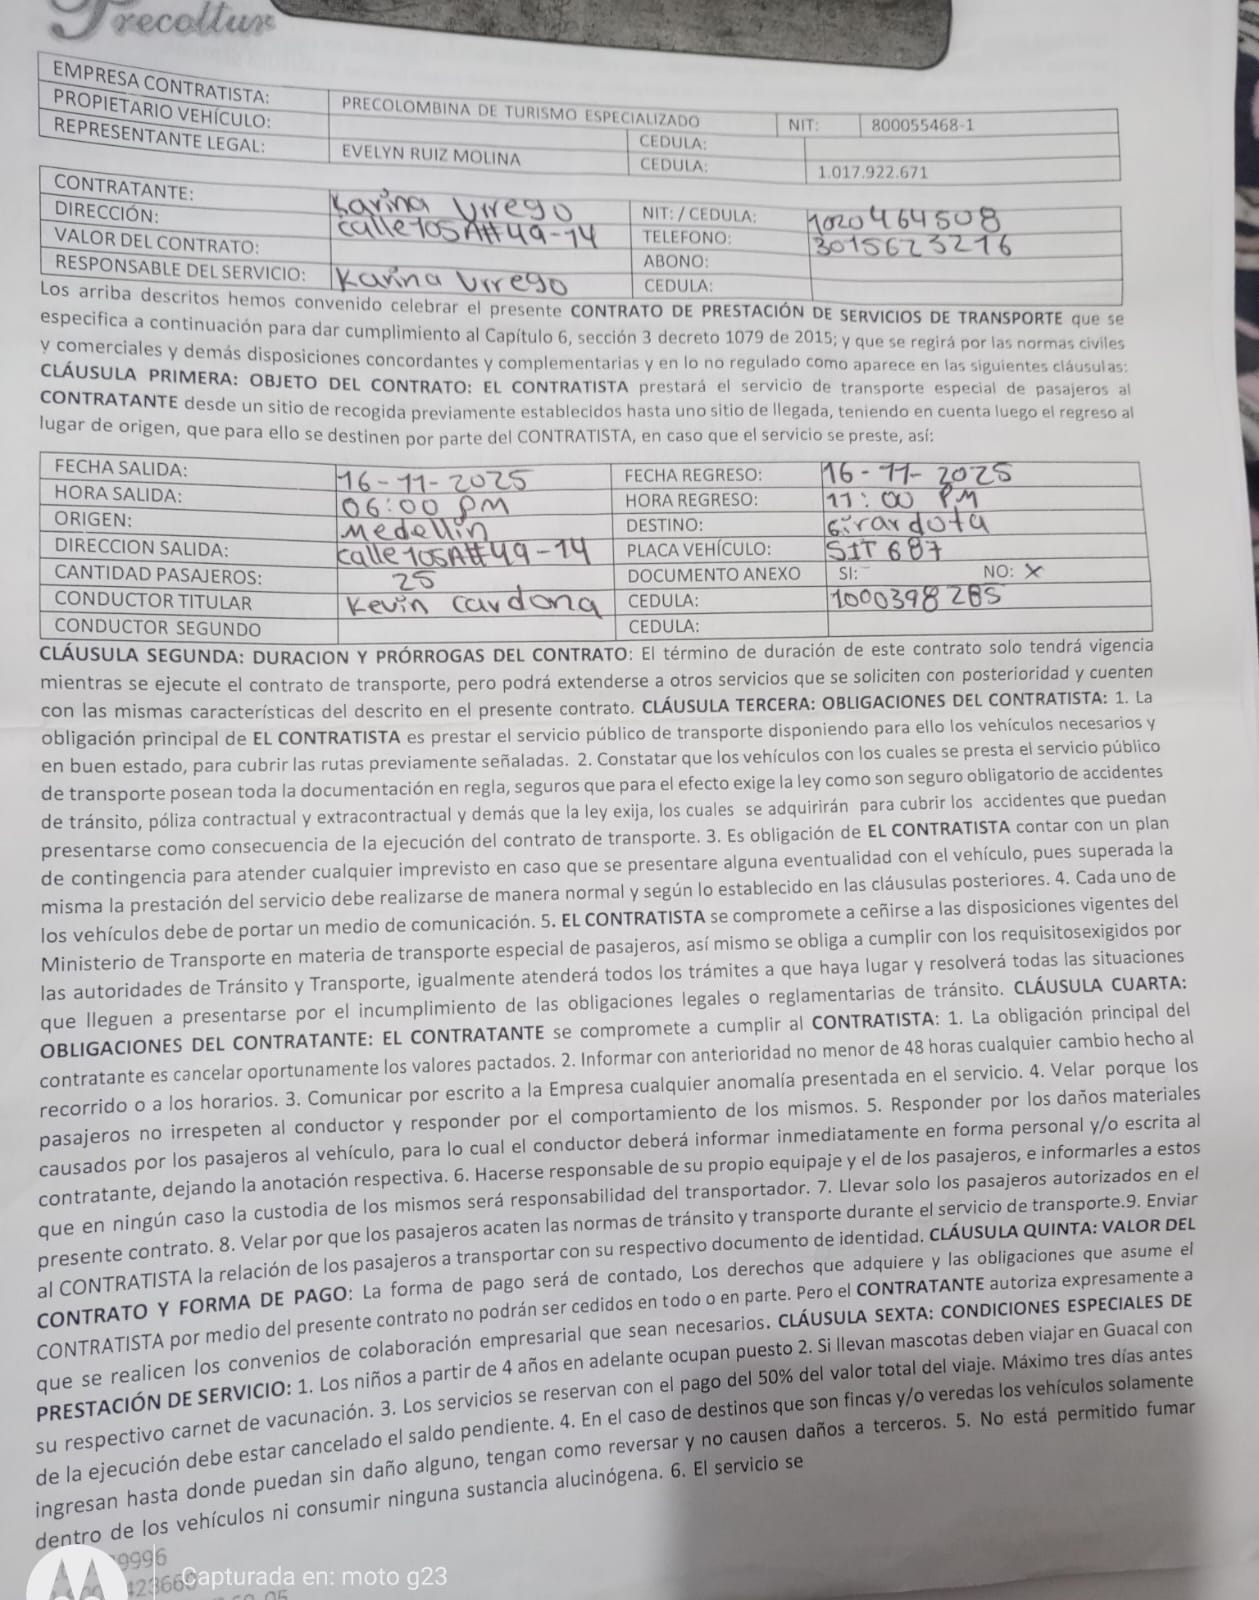 Precoltur
EMPRESA CONTRATISTA: PRECOLOMBINA DE TURISMO ESPECIALIZADO NIT: 800055468-1
PROPIETARIO VEHÍCULO: CEDULA:
REPRESENTANTE LEGAL: EVELYN RUIZ MOLINA CEDULA: 1.017.922.671
CONTRATANTE: Karina Urrego NIT: / CEDULA: 1020464508
DIRECCIÓN: calle 105A#49-14 TELEFONO: 3015623216
VALOR DEL CONTRATO: ABONO:
RESPONSABLE DEL SERVICIO: Karina Urrego CEDULA:
Los arriba descritos hemos convenido celebrar el presente CONTRATO DE PRESTACIÓN DE SERVICIOS DE TRANSPORTE que se
especifica a continuación para dar cumplimiento al Capítulo 6, sección 3 decreto 1079 de 2015; y que se regirá por las normas civiles
y comerciales y demás disposiciones concordantes y complementarias y en lo no regulado como aparece en las siguientes cláusulas:
CLÁUSULA PRIMERA: OBJETO DEL CONTRATO: EL CONTRATISTA prestará el servicio de transporte especial de pasajeros al
CONTRATANTE desde un sitio de recogida previamente establecidos hasta uno sitio de llegada, teniendo en cuenta luego el regreso al
lugar de origen, que para ello se destinen por parte del CONTRATISTA, en caso que el servicio se preste, así:
FECHA SALIDA: 16-11-2025 FECHA REGRESO: 16-11-2025
HORA SALIDA: 06:00 PM HORA REGRESO: 11:00 PM
ORIGEN: Medellin DESTINO: Girardota
DIRECCION SALIDA: calle 105A#49-14 PLACA VEHÍCULO: SIT 687
CANTIDAD PASAJEROS: 25 DOCUMENTO ANEXO SI: NO: X
CONDUCTOR TITULAR Kevin cardona CEDULA: 1000398285
CONDUCTOR SEGUNDO CEDULA:
CLÁUSULA SEGUNDA: DURACION Y PRÓRROGAS DEL CONTRATO: El término de duración de este contrato solo tendrá vigencia
mientras se ejecute el contrato de transporte, pero podrá extenderse a otros servicios que se soliciten con posterioridad y cuenten
con las mismas características del descrito en el presente contrato. CLÁUSULA TERCERA: OBLIGACIONES DEL CONTRATISTA: 1. La
obligación principal de EL CONTRATISTA es prestar el servicio público de transporte disponiendo para ello los vehículos necesarios y
en buen estado, para cubrir las rutas previamente señaladas. 2. Constatar que los vehículos con los cuales se presta el servicio público
de transporte posean toda la documentación en regla, seguros que para el efecto exige la ley como son seguro obligatorio de accidentes
de tránsito, póliza contractual y extracontractual y demás que la ley exija, los cuales se adquirirán para cubrir los accidentes que puedan
presentarse como consecuencia de la ejecución del contrato de transporte. 3. Es obligación de EL CONTRATISTA contar con un plan
de contingencia para atender cualquier imprevisto en caso que se presentare alguna eventualidad con el vehículo, pues superada la
misma la prestación del servicio debe realizarse de manera normal y según lo establecido en las cláusulas posteriores. 4. Cada uno de
los vehículos debe de portar un medio de comunicación. 5. EL CONTRATISTA se compromete a ceñirse a las disposiciones vigentes del
Ministerio de Transporte en materia de transporte especial de pasajeros, así mismo se obliga a cumplir con los requisitosexigidos por
las autoridades de Tránsito y Transporte, igualmente atenderá todos los trámites a que haya lugar y resolverá todas las situaciones
que lleguen a presentarse por el incumplimiento de las obligaciones legales o reglamentarias de tránsito. CLÁUSULA CUARTA:
OBLIGACIONES DEL CONTRATANTE: EL CONTRATANTE se compromete a cumplir al CONTRATISTA: 1. La obligación principal del
contratante es cancelar oportunamente los valores pactados. 2. Informar con anterioridad no menor de 48 horas cualquier cambio hecho al
recorrido o a los horarios. 3. Comunicar por escrito a la Empresa cualquier anomalía presentada en el servicio. 4. Velar porque los
pasajeros no irrespeten al conductor y responder por el comportamiento de los mismos. 5. Responder por los daños materiales
causados por los pasajeros al vehículo, para lo cual el conductor deberá informar inmediatamente en forma personal y/o escrita al
contratante, dejando la anotación respectiva. 6. Hacerse responsable de su propio equipaje y el de los pasajeros, e informarles a estos
que en ningún caso la custodia de los mismos será responsabilidad del transportador. 7. Llevar solo los pasajeros autorizados en el
presente contrato. 8. Velar por que los pasajeros acaten las normas de tránsito y transporte durante el servicio de transporte.9. Enviar
al CONTRATISTA la relación de los pasajeros a transportar con su respectivo documento de identidad. CLÁUSULA QUINTA: VALOR DEL
CONTRATO Y FORMA DE PAGO: La forma de pago será de contado, Los derechos que adquiere y las obligaciones que asume el
CONTRATISTA por medio del presente contrato no podrán ser cedidos en todo o en parte. Pero el CONTRATANTE autoriza expresamente a
que se realicen los convenios de colaboración empresarial que sean necesarios. CLÁUSULA SEXTA: CONDICIONES ESPECIALES DE
PRESTACIÓN DE SERVICIO: 1. Los niños a partir de 4 años en adelante ocupan puesto 2. Si llevan mascotas deben viajar en Guacal con
su respectivo carnet de vacunación. 3. Los servicios se reservan con el pago del 50% del valor total del viaje. Máximo tres días antes
de la ejecución debe estar cancelado el saldo pendiente. 4. En el caso de destinos que son fincas y/o veredas los vehículos solamente
ingresan hasta donde puedan sin daño alguno, tengan como reversar y no causen daños a terceros. 5. No está permitido fumar
dentro de los vehículos ni consumir ninguna sustancia alucinógena. 6. El servicio se
9996
Capturada en: moto g23